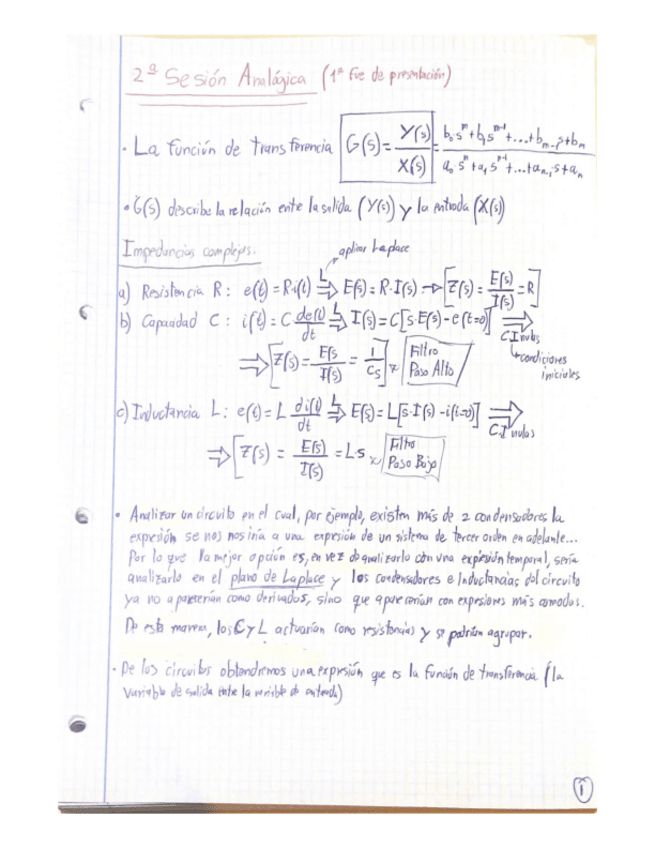 2ª Sesión Analógica (1ª fue de presentación)
• La función de transferencia G(s) = Y(s)/X(s) = b₀·sᵐ+b₁sᵐ⁻¹+...+bₘ₋₁s+bₘ / a₀·sⁿ+a₁sⁿ⁻¹+...+aₙ₋₁s+aₙ
• G(s) describe la relación ente la salida (Y(s)) y la entrada (X(s))
Impedancias complejas.
aplicar Laplace
a) Resistencia R: e(t)=R·i(t) L⇒ E(s)=R·I(s) → [Z(s)=E(s)/I(s)=R]
b) Capacidad C: i(t)=C de(t)/dt L⇒ I(s)=C[s·E(s)-e(t=0)] ⇒ C.I nulas
condiciones iniciales
⇒ [Z(s)=E(s/I(s)=1/Cs] Filtro Paso Alto
c) Inductancia L: e(t)=L di(t)/dt L⇒ E(s)=L[s·I(s)-i(t=0)] ⇒ C.I nulas
⇒ [Z(s)=E(s)/I(s)=L·s Filtro Paso Bajo
• Analizar un circuito en el cual, por ejemplo, existen más de 2 condensadores la
expresión se nos iría a una expresión de un sistema de tercer orden en adelante...
Por lo que la mejor opción es, en vez de analizarlo con una expresión temporal, sería
analizarlo en el plano de Laplace y los condensadores e Inductancias del circuito
ya no aparecerían como derivadas, sino que aparecerían con expresiones más comodas.
De esta manera, los C y L actuarían como resistencias y se podrían agrupar.
• De los circuitos obtendremos una expresión que es la función de transferencia (la
variable de salida ente la variable de entrada)
1